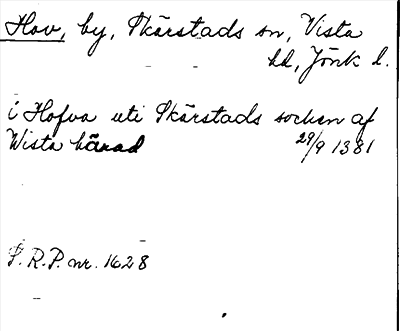 Hov, by, Skärstads sn, Vista
hd, Jönk l.
i Hofva uti Skärstads socken af
Wista härad 29/9 1381
S. R. P. nr. 1628